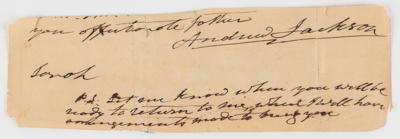 you affectionate father
Andrew Jackson
Sarah
P.S. Let me know when you will be
ready to return to me, when I will have
arrangements made to bring you